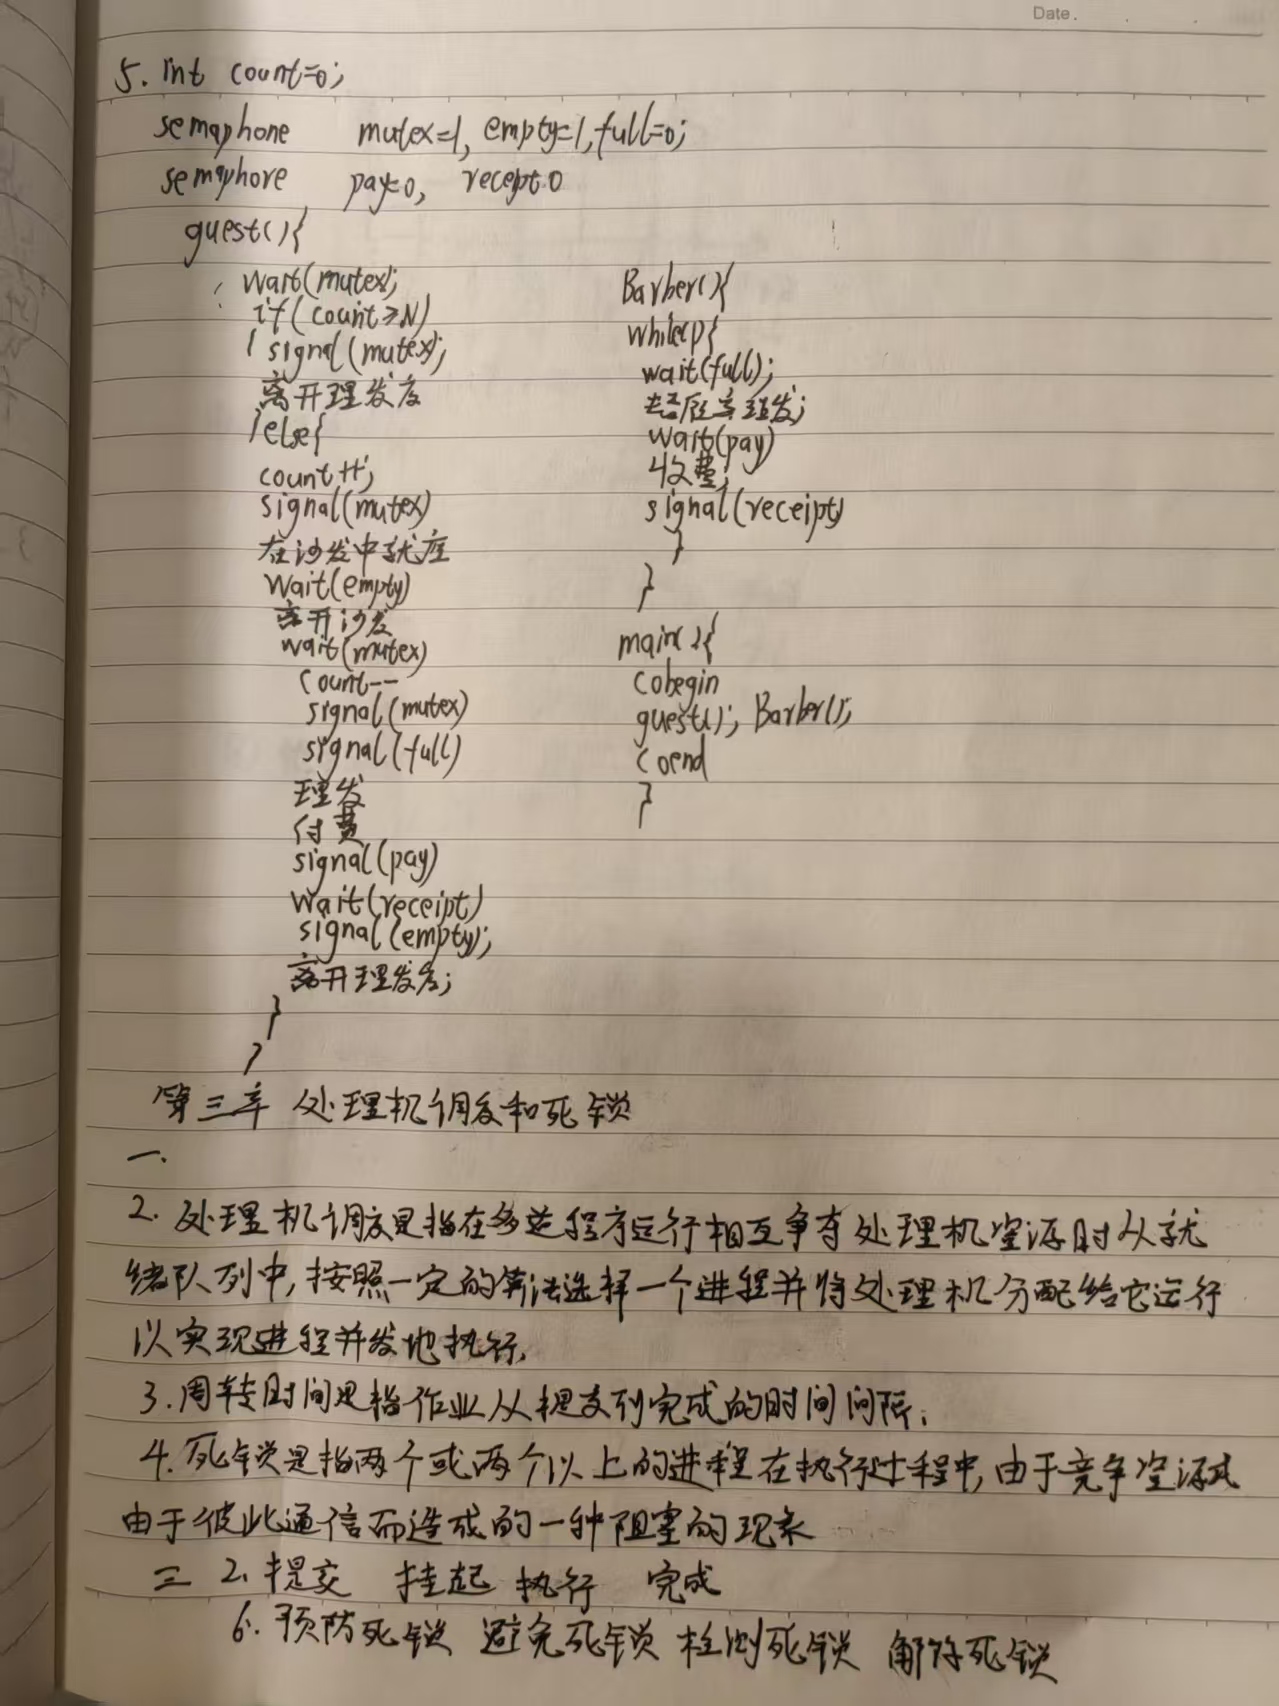 Date.
5. int count=0;
semaphone mutex=1, empty=1, full=0;
semaphore pay=0, recept=0
guest(){
wait(mutex);
if(count≥N)
{ signal(mutex);
离开理发店
}else{
count++;
signal(mutex)
在沙发中就座
wait(empty)
离开沙发
wait(mutex)
count--
signal(mutex)
signal(full)
理发
付费
signal(pay)
wait(receipt)
signal(empty);
离开理发店;
}
}
Barber(){
while(1){
wait(full);
给顾客理发;
wait(pay)
收费;
signal(receipt)
}
}
main(){
cobegin
guest(); Barber();
coend
}
第三章 处理机调度和死锁
一.
2. 处理机调度是指在多道程序运行相互争夺处理机资源时从就
绪队列中,按照一定的算法选择一个进程并将处理机分配给它运行
以实现进程并发地执行.
3. 周转时间是指作业从提交到完成的时间间隔;
4. 死锁是指两个或两个以上的进程在执行过程中,由于竞争资源或
由于彼此通信而造成的一种阻塞的现象
二 2. 提交 挂起 执行 完成
6. 预防死锁 避免死锁 检测死锁 解除死锁